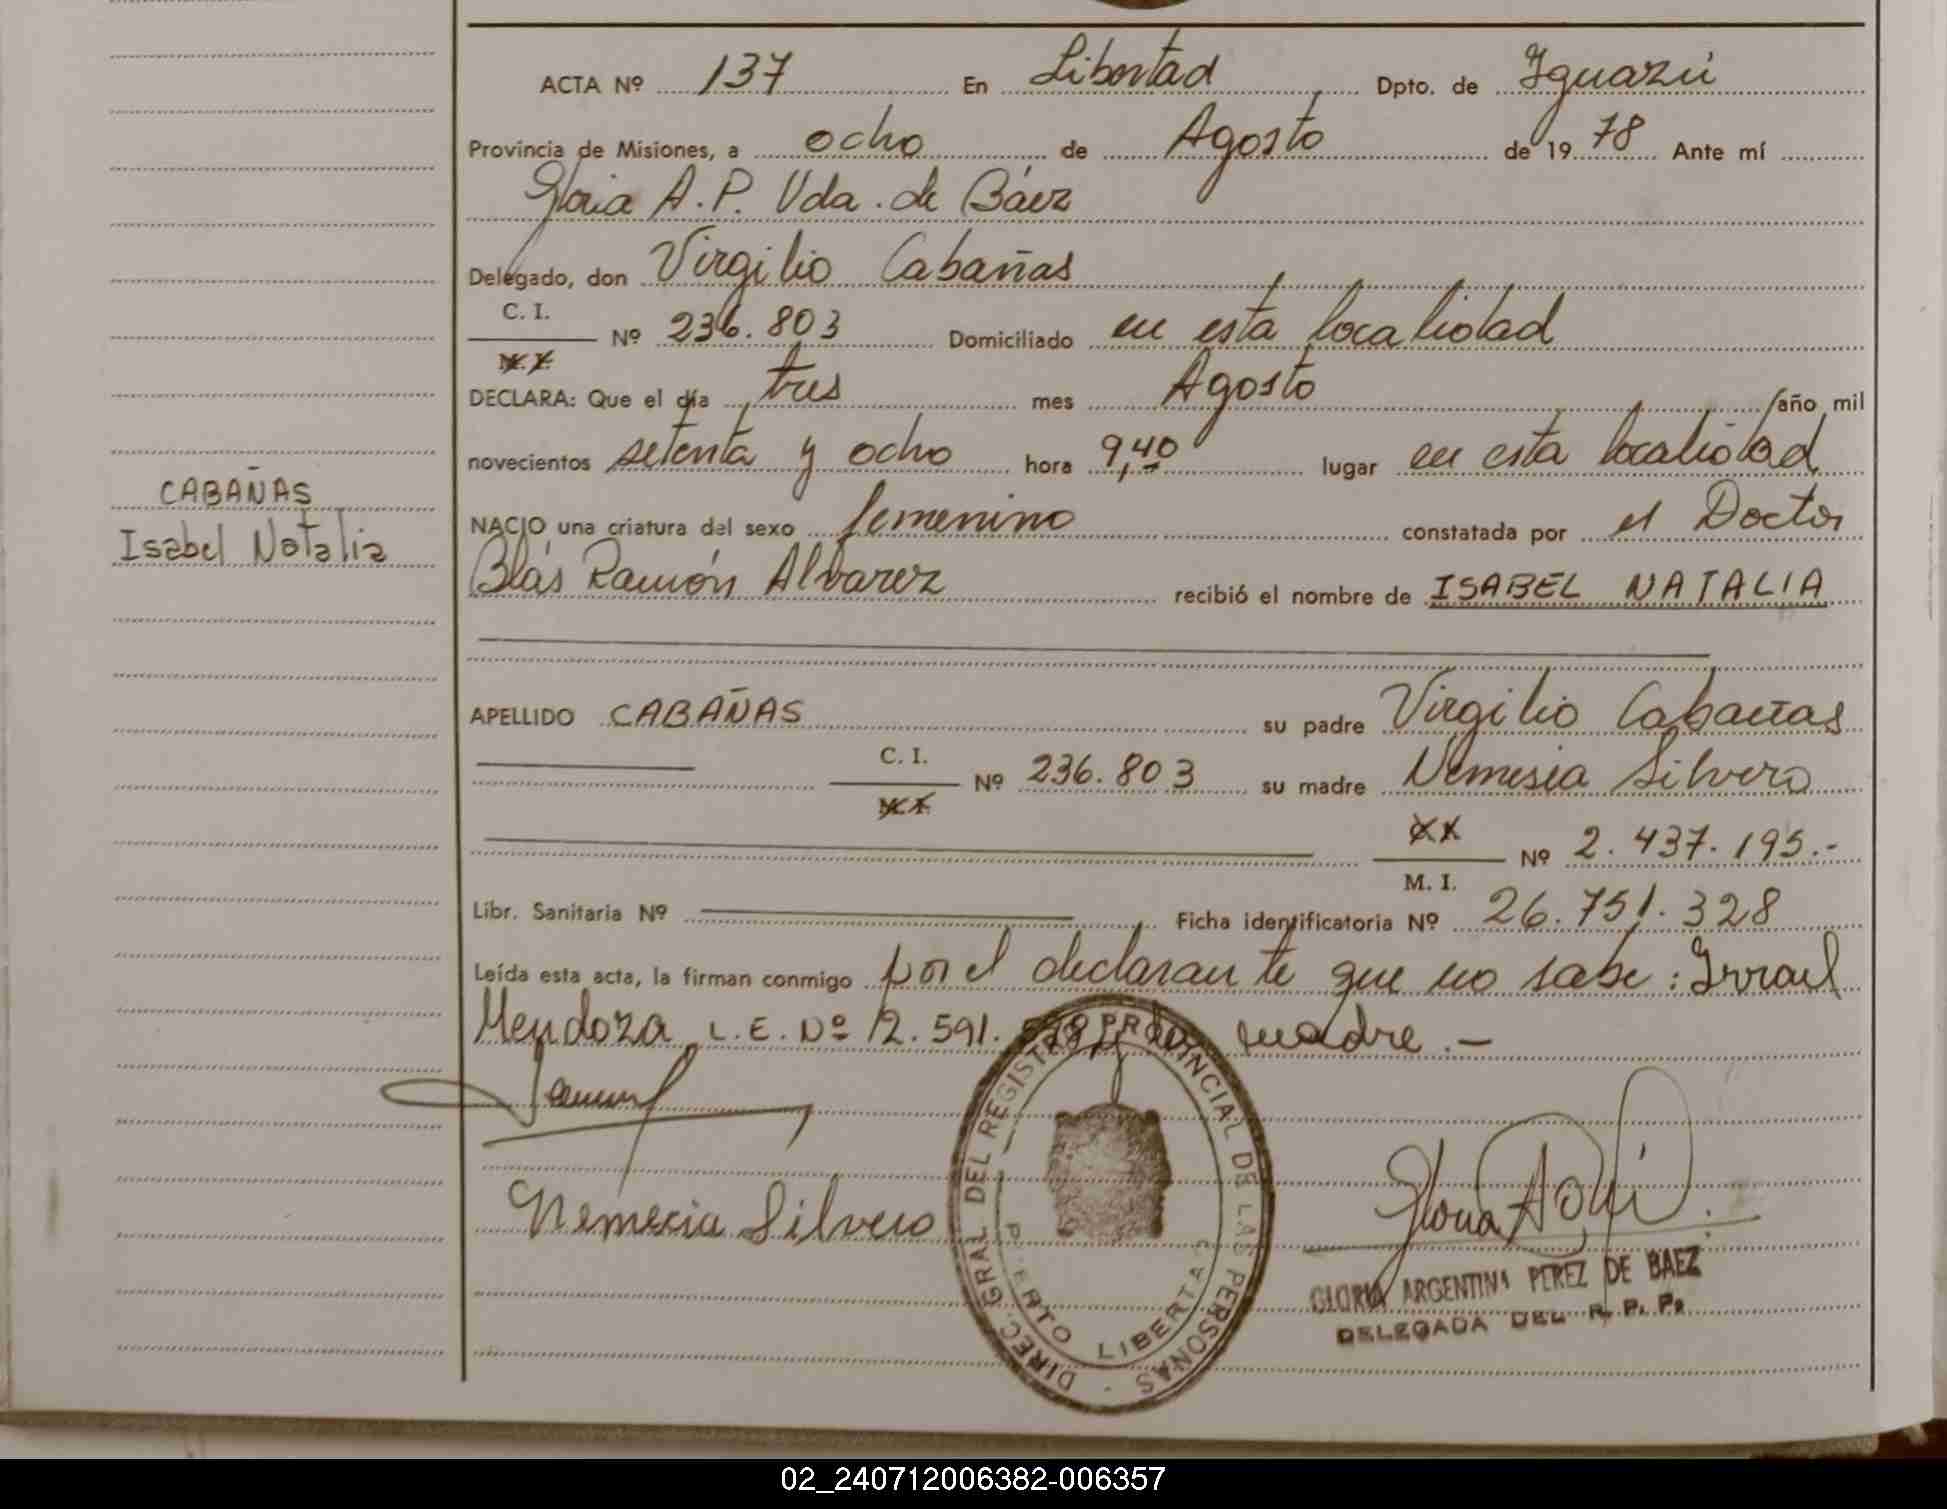 ACTA Nº 137 En Libertad Dpto. de Iguazú
Provincia de Misiones, a ocho de Agosto de 1978 Ante mí
Gloria A. P. Vda. de Báez
Delegado, don Virgilio Cabañas
C. I.
Nº 236.803 Domiciliado en esta localidad
M. I.
DECLARA: Que el día tres mes Agosto año mil
novecientos setenta y ocho hora 9,40 lugar en esta localidad
CABAÑAS
Isabel Natalia
NACIO una criatura del sexo femenino constatada por el Doctor
Blás Ramón Alvarez recibió el nombre de ISABEL NATALIA
APELLIDO CABAÑAS su padre Virgilio Cabañas
C. I.
Nº 236.803 su madre Nemesia Silvero
M. I.
Nº 2.437.195.-
M. I.
Libr. Sanitaria Nº Ficha identificatoria Nº 26.751.328
Leída esta acta, la firman conmigo por el declarante que no sabe: Irrael
Mendoza L.E. Nº 12.591. madre.-
Nemecia Silvero
DIREC. GRAL DEL REGISTRO PROVINCIAL DE LAS PERSONAS
PUERTO LIBERTAD
Gloria
GLORIA ARGENTINA PEREZ DE BAEZ
DELEGADA DEL R. P. P.
02_240712006382-006357